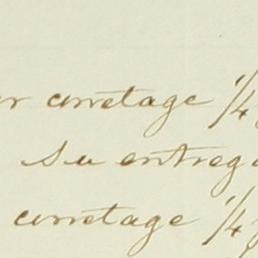 corretage 1/4
Su entrega
corretage 1/4